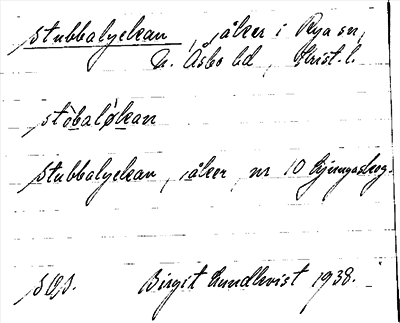 Stubbalyckan, åker i Rya sn,
N. Åsbo hd, Krist. l.
stòbalỳkan
Stubbalyckan, åker, nr 10 Ljungaskog.
Birgit Lundkvist 1938.